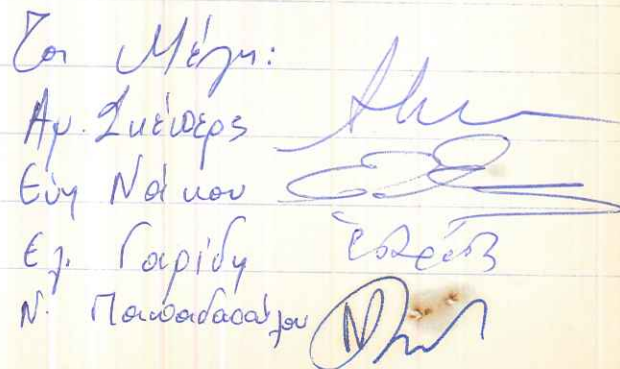 Τα Μέλη:
Αρ. Σκέπερς
Εύη Νάκου
Ελ. Γαρίδη
Ν. Παπαδοπούλου